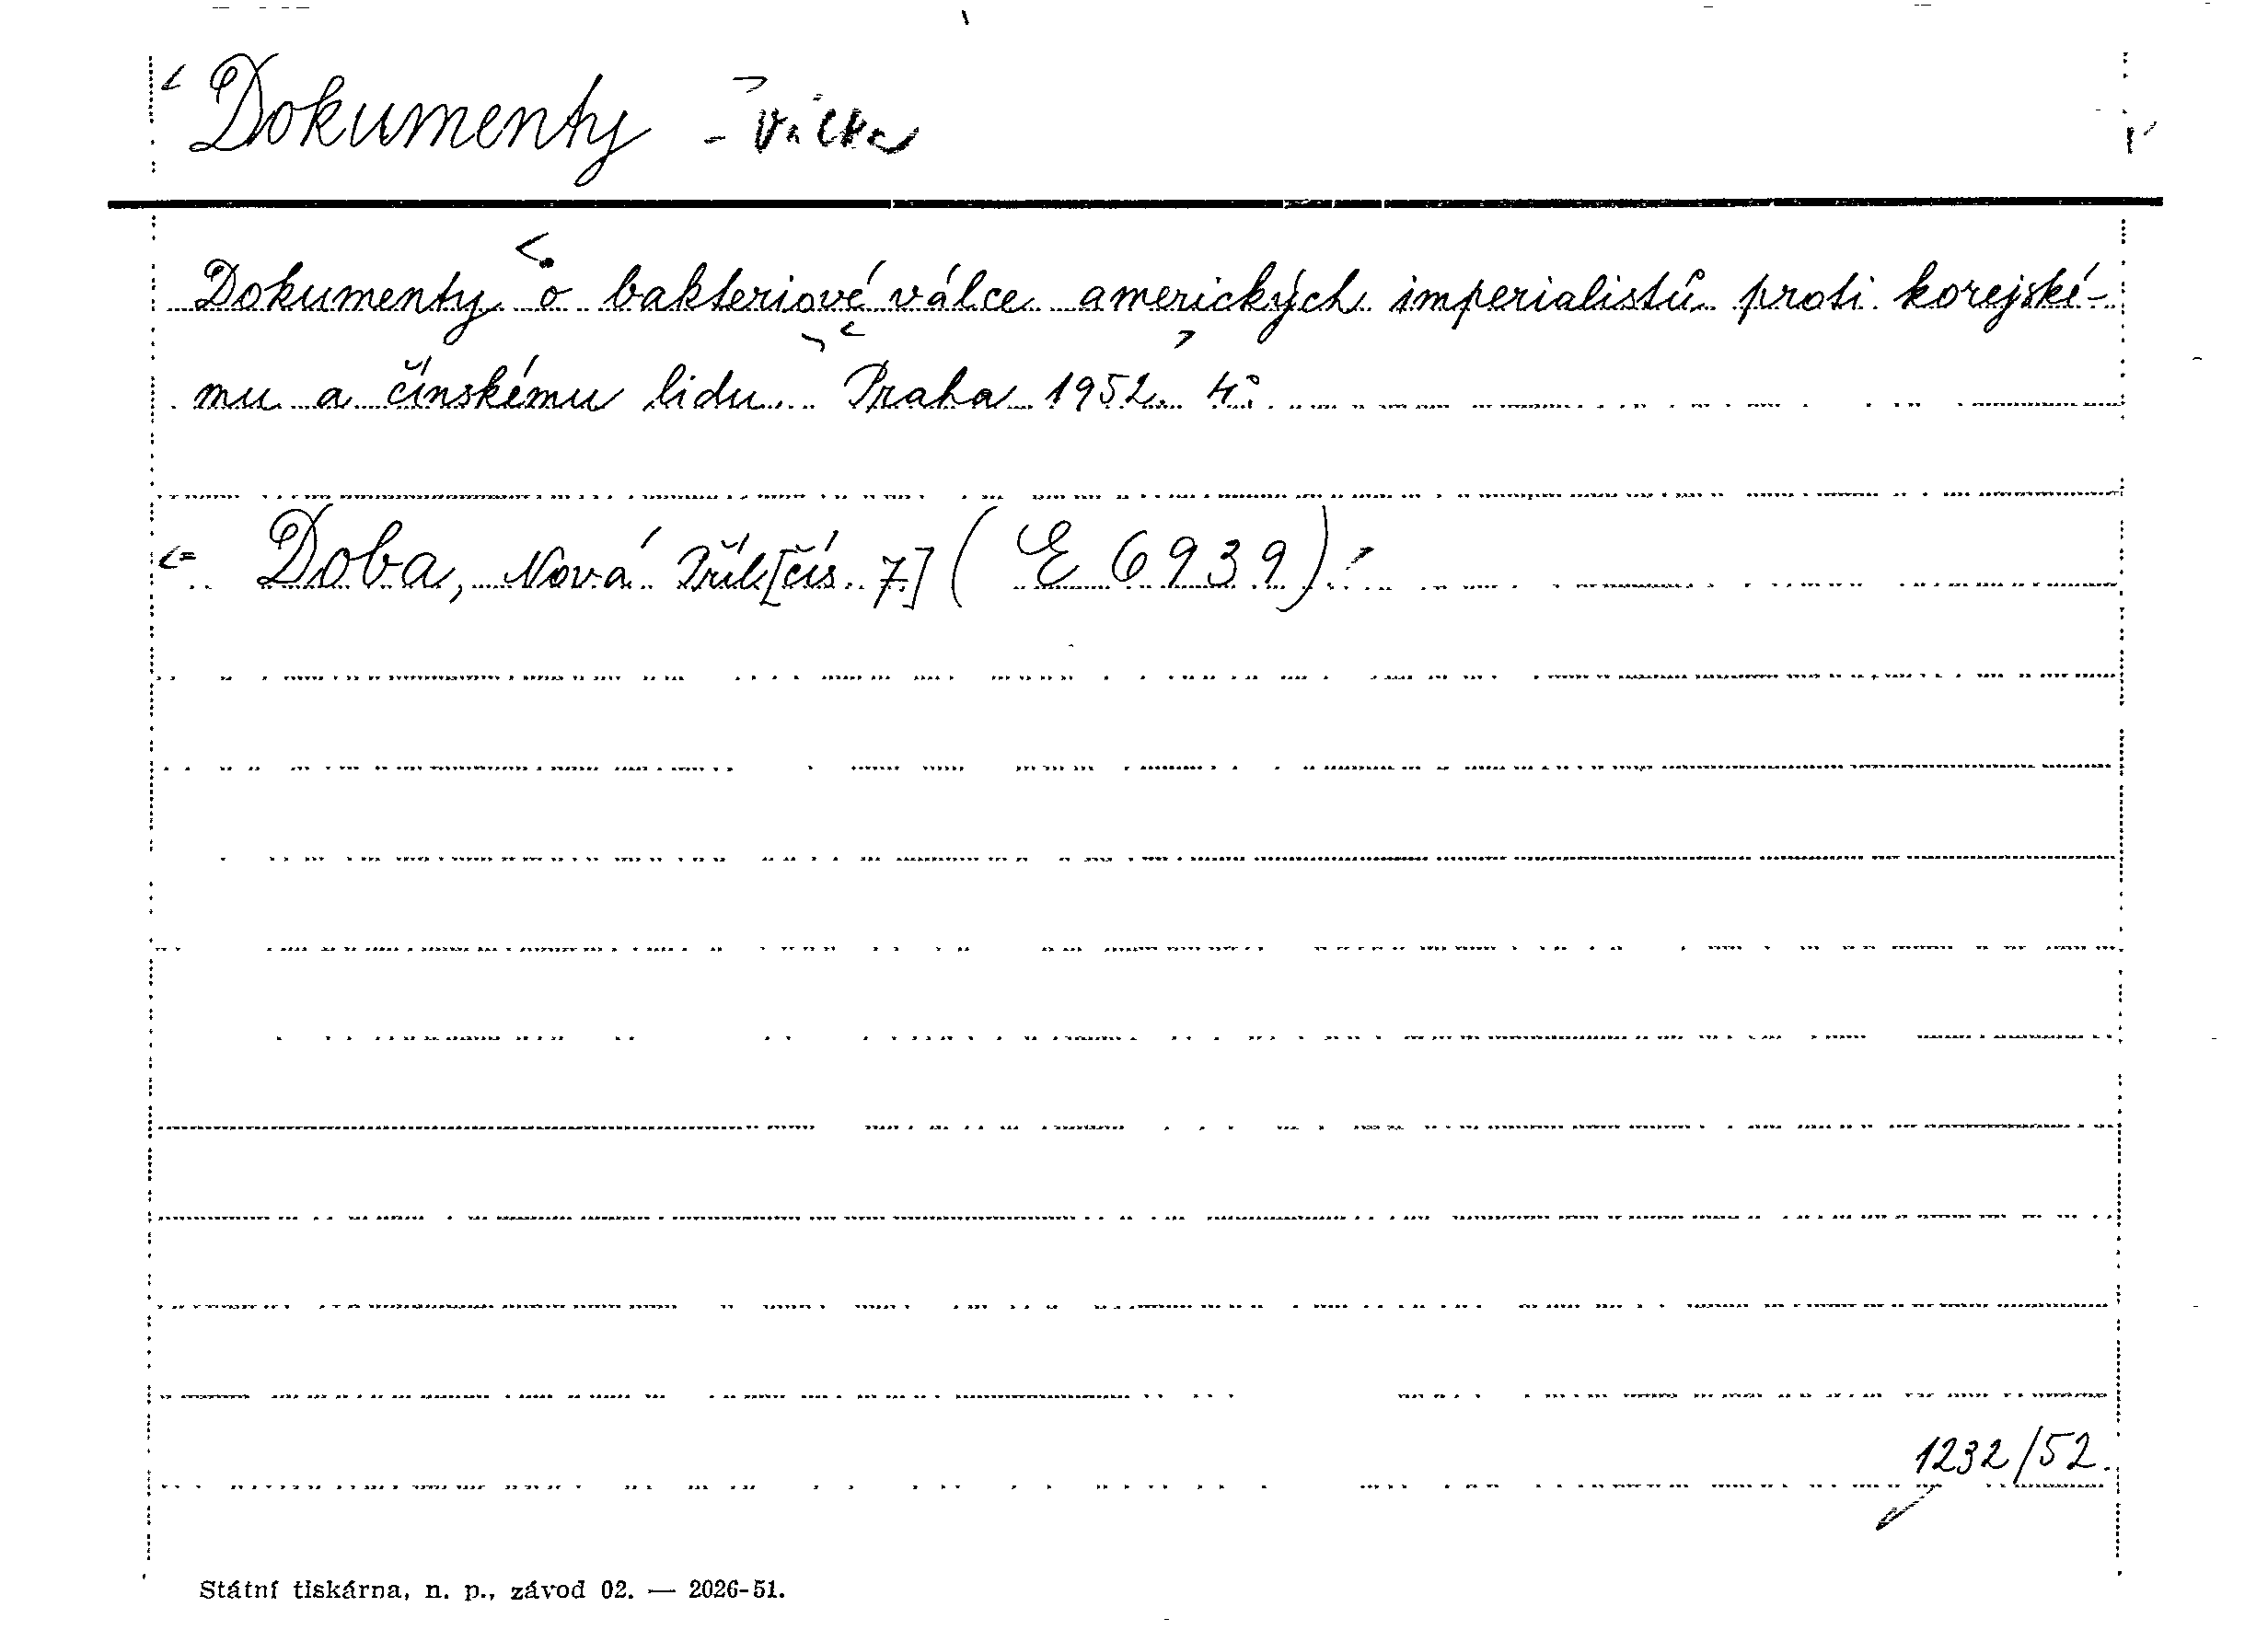 Dokumenty - válka
Dokumenty o bakteriové válce amerických imperialistů proti korejské-
mu a čínskému lidu. Praha 1952. 4°.
Doba, Nová Příl[čís. 7] (E 6939)
1232/52.
Státní tiskárna, n. p., závod 02. — 2026-51.